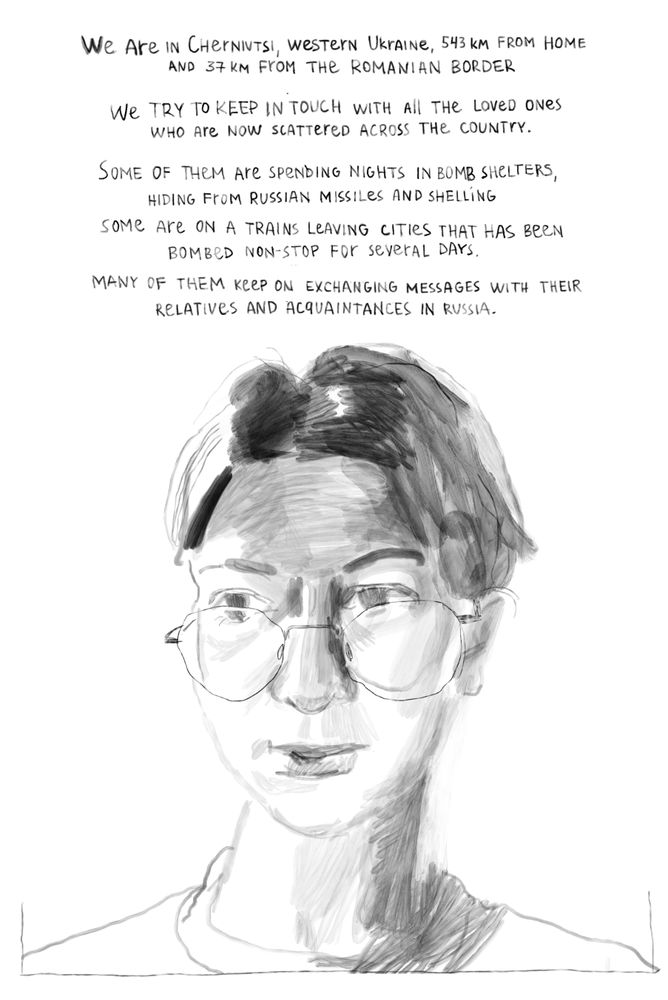 We Are in Chernivtsi, western Ukraine, 543 km from home
and 37 km from the Romanian border
We try to keep in touch with all the loved ones
who are now scattered across the country.
Some of them are spending nights in bomb shelters,
hiding from Russian missiles and shelling
Some are on a trains leaving cities that has been
bombed non-stop for several days.
Many of them keep on exchanging messages with their
relatives and acquaintances in russia.